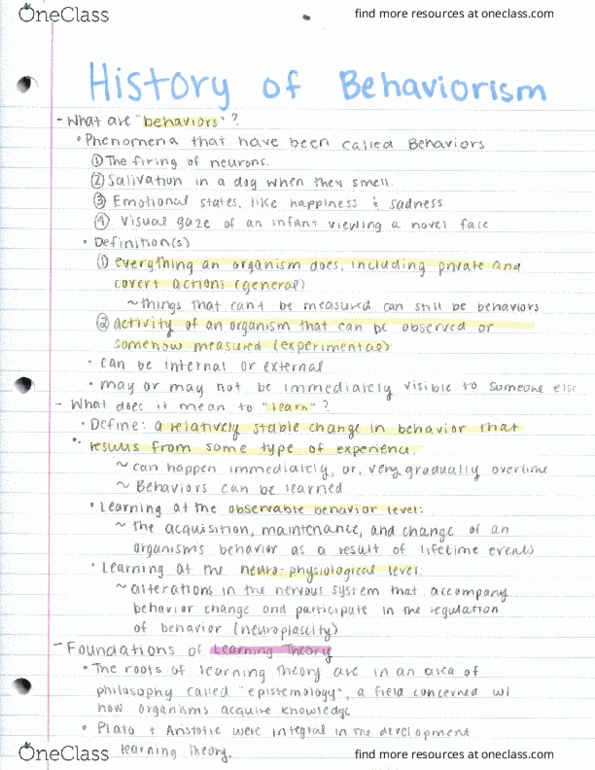 OneClass
find more resources at oneclass.com
History of Behaviorism
- What are "behaviors"?
• Phenomena that have been called Behaviors
① The firing of neurons.
② Salivation in a dog when they smell.
③ Emotional states, like happiness & sadness
④ Visual gaze of an infant viewing a novel face
• Definition(s)
① everything an organism does, including private and
covert actions (general)
~ things that can't be measured can still be behaviors
② activity of an organism that can be observed or
somehow measured (experimental)
• can be internal or external
• may or may not be immediately visible to someone else
- What does it mean to "learn"?
• Define: a relatively stable change in behavior that
results from some type of experience.
~ can happen immediately, or, very gradually overtime
~ Behaviors can be learned
• Learning at the observable behavior level:
~ the acquisition, maintenance, and change of an
organisms behavior as a result of lifetime events
• Learning at the neuro-physiological level:
~ alterations in the nervous system that accompany
behavior change and participate in the regulation
of behavior (neuroplascity)
- Foundations of Learning Theory
• The roots of learning theory are in an area of
philosophy called "epistemology", a field concerned w/
how organisms acquire knowledge
• Plato + Aristotle were integral in the development
learning theory.
OneClass
find more resources at oneclass.com